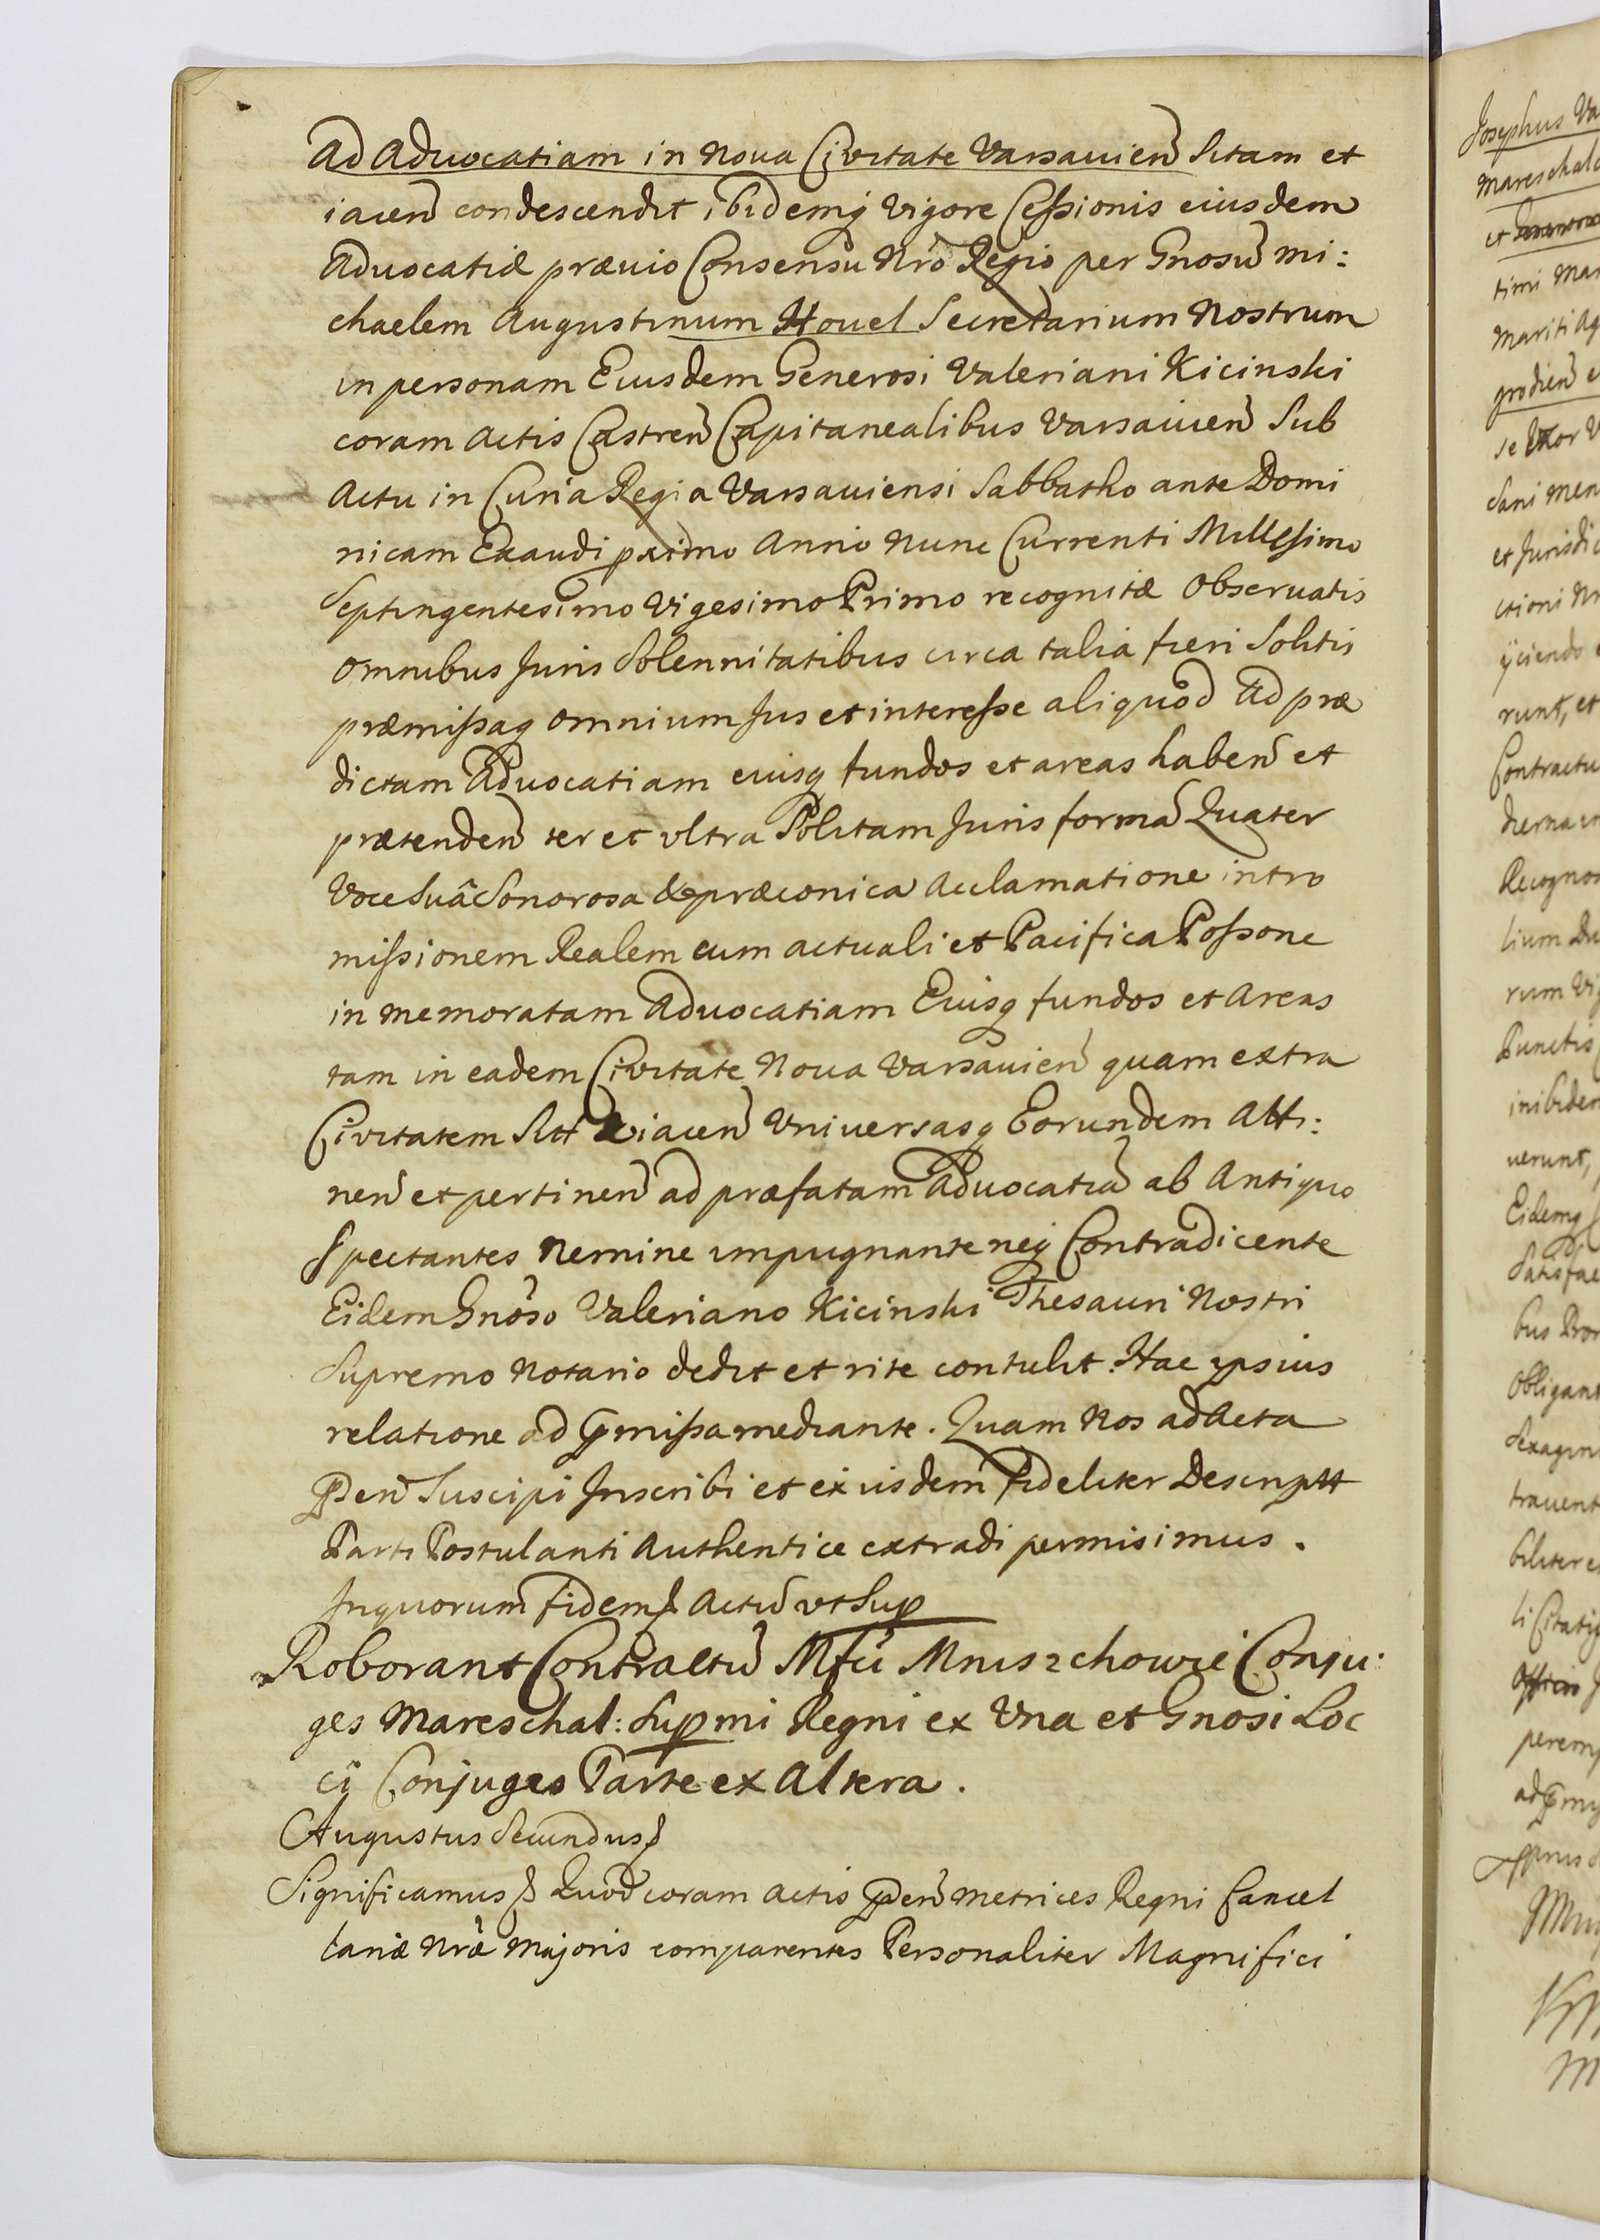 Ad Advocatiam in Noua Civitate Varsauien Sitam et
iacen condescendit, ibidemq Vigore Cessionis eiusdem
Advocatiæ prævio Consensu Nro Regio per Gnosu Mi:
chaelem Augustinum Houel Secretarium Nostrum
in personam Eiusdem Generosi Valeriani Kicinski
coram Actis Castren Capitanealibus Varsavien Sub
Actu in Curia Regia Varsauiensi Sabbatho ante Domi
nicam Exaudi pximo Anno Nunc Currenti Millesimo
Septingentesimo Vigesimo Primo recognitæ Observatis
omnibus Juris Solennitatibus circa talia fieri Solitis
præmissaq omnium Jus et interesse aliquod ad præ
dictam Advocatiam eiusq fundos et areas haben et
prætenden ter et ultra Politam Juris formã Quater
Voce Suâ Sonorosa & præconica Acclamatione intro
missionem Realem cum actuali et Pacifica Possone
in memoratam Advocatiam Eiusq fundos et Areas
tam in eadem Civitate Noua Varsavien quam extra
Civitatem Sitt & iacen Universasq Eorundem Atti:
nen et pertinen ad præfatam Advocatiã ab Antiquo
Spectantes Nemine impugnante neq Contradicente
Eidem Gnoso Valeriano Kicinski Thesauri Nostri
Supremo Notario dedit et rite contulit. Hac ipsius
relatione ad pmissa mediante. Quam Nos ad Acta
pden Suscipi Inscribi et ex iisdem fideliter Descriptt
Parti Postulanti Authentice extradi permisimus.
In quorum fidem Actũ ut Sup
Roborant Contractũ Mfci Mniszchowie Conju:
ges Mareschal: Supmi Regni ex Una et Gnosi Loc
cii Conjuges Parte ex Altera.
Augustus Secundus
Significamus Quod coram Actis pden Metrices Regni Cancel
lariæ Nræ Majoris comparentes Personaliter Magnifici
Josephus Va
Mareschalc
et
timi Mar
Mariti
grodien
se
Sani men
et Jurisdic
ctioni Nr
ijciendo
runt, et
Contractu
Recognos
lium Du
rum Vig
Punctis
inibidem
uerunt,
Eidemq
Satisfac
bus
Obligant
Sexagin
trauent
biliter
li
peremp